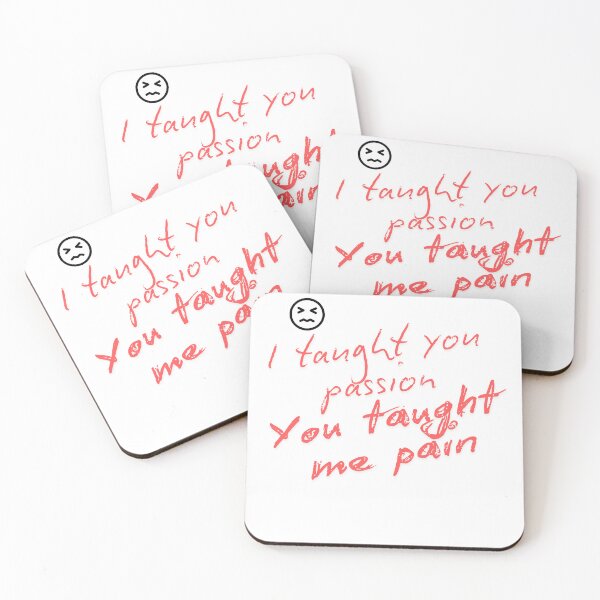 I taught you
passion
You taught
me pain
I taught you
passion
You taught
me pain
I taught you
passion
You taught
me pain
I taught you
passion
You taught
me pain